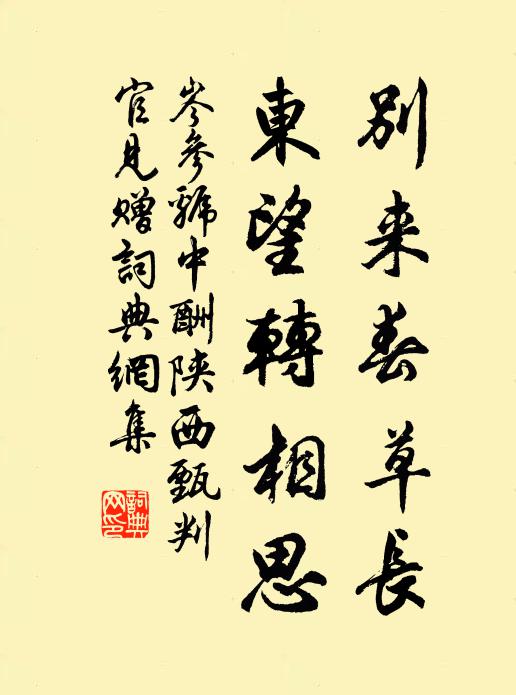 別来春草長
東望轉相思
岑參虢中酬陝西甄判
官見贈詞典網集
詞典网印